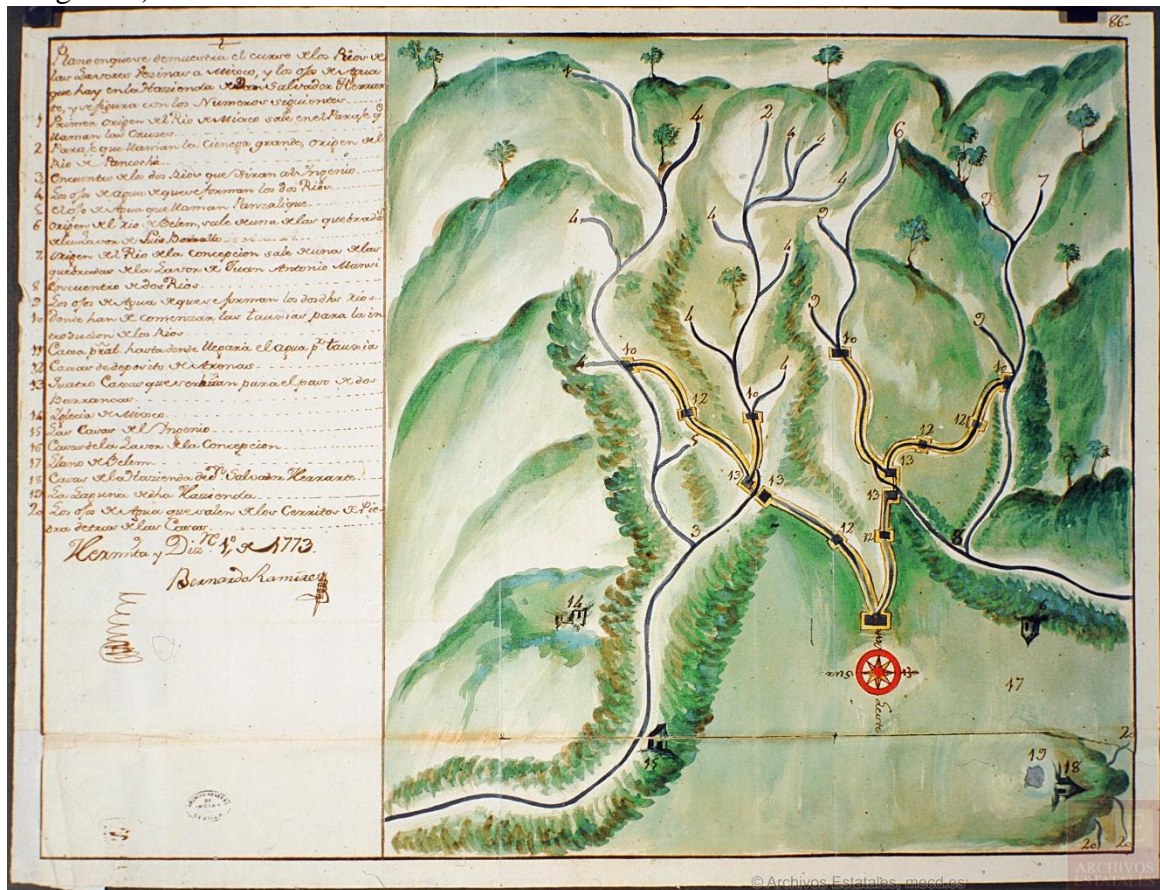 86.
Plano en que se demuestra el curso de los Rios de
las Lavores Vezinas a Mixco, y los ojos de Agua
que hay en la Hazienda de Dn Salvador Herrar
te, y se figura con los Numeros siguientes
1 Primer origen del Rio de Mixco sale en el Paraje q
llaman las Cruzes
2 Paraje que llaman la Cienega grande, origen del
Rio de Pancochá
3 Encuentro de los dos Rios que giran al Ingenio
4 Los ojos de agua de que se forman los dos Rios
5 el ojo de Agua que llaman Panzalique
6 origen del rio de Belem, sale de una de las quebradas
de la Lavor de Luis
7 origen del Rio de la Concepcion sale de una de las
quebradas de la Lavor de Juan Antonio
8 Encuentro de dos Rios
9 Los ojos de Agua de que se forman los dos dhos rios
10 donde han de comenzar las tauxias para la in
troducion de los Rios
11 Caxa pral. hasta donde llegará el agua pr. tauxia
12 Caxas de deposito de Arenas
13 Quatro Caxas que serviran para el paso de dos
Barrancas
14 Iglecia de Mixco
15 Las Casas del Ingenio
16 Casas de la Lavor de la Concepcion
17 Llano de Belem
18 Casas de la Hazienda de Dn. Salvador Herrarte
19 La Laguna de dha Hazienda
20 Los ojos de Agua que salen de los Cerritos de Pie
dra detras de las Casas
Hermita y Dizre. 1o. de 1773.
Bernardo Ramirez
1
4
2
4
4
6
4
9
7
4
4
9
4
4
9
9
4
10
4
10
10
12
10
12
12
5
13
13
13
13
3
12
12
8
14
Sur
17
15
20
19
18
20
20
ARCHIVO GENERAL
DE
INDIAS
SEVILLA
ARCHIVOS
ESTATALES
© Archivos Estatales, mecd.es